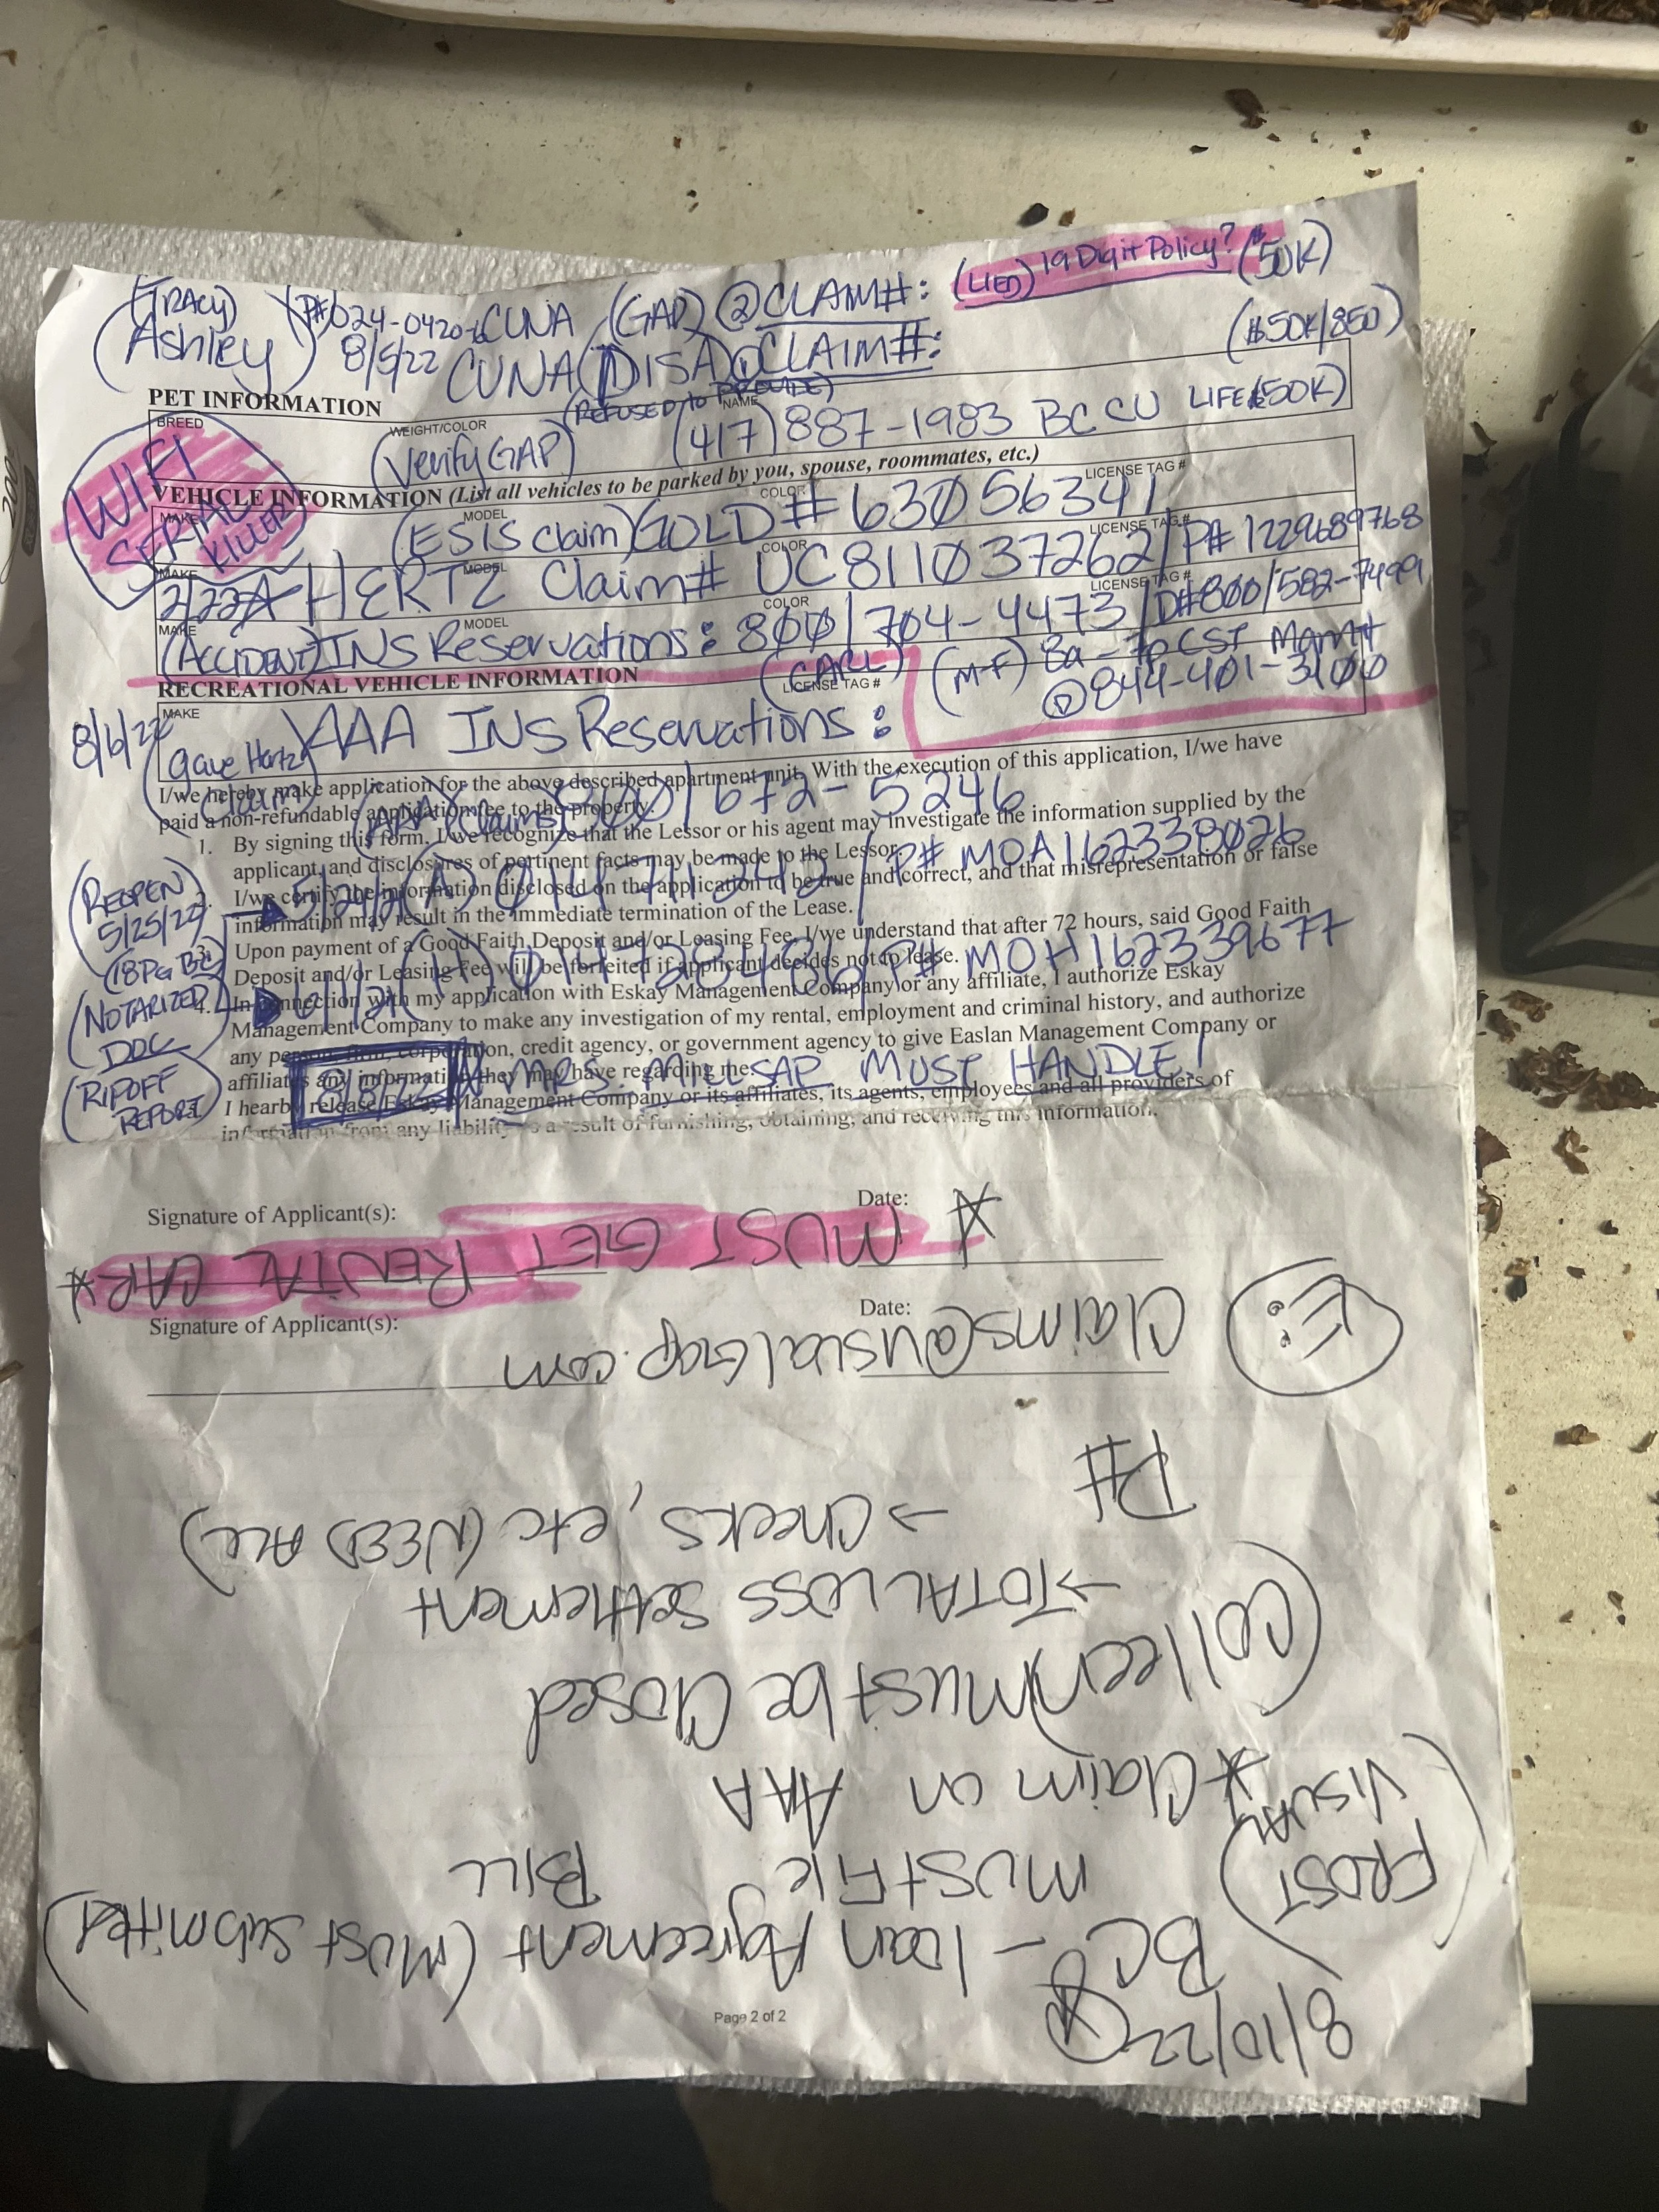 (TRACY) P# 024-0420-6 CUNA (GAP) ② CLAIM#: (LIED) 19 Digit Policy? ($50K)
(Ashley) 8/5/22 CUNA (DISA) ① CLAIM#: ($50K/850)
(REFUSED to PROVIDE)
PET INFORMATION
BREED WEIGHT/COLOR NAME
(Verify GAP) (417) 887-1983 BCCU LIFE ($50K)
WIFI SERIAL KILLER
VEHICLE INFORMATION (List all vehicles to be parked by you, spouse, roommates, etc.)
MAKE MODEL COLOR LICENSE TAG #
(ESIS Claim) GOLD # 63056341
MAKE MODEL COLOR LICENSE TAG #
2/22 HERTZ Claim# UC811037262 / P# 1229689768
MAKE MODEL COLOR LICENSE TAG #
(ACCIDENT) INS Reservations: 800/704-4473 / D# 800/582-7499
(CARL) (M-F) 8a-7p CST Mgmt
② 844-401-3100
RECREATIONAL VEHICLE INFORMATION
MAKE LICENSE TAG #
8/6/22 AAA INS Reservations:
(Gave Hertz Claim)
I/we hereby make application for the above described apartment unit. With the execution of this application, I/we have
paid a non-refundable application fee to the property.
(AAA Claims) 800/672-5246
1. By signing this form. I/we recognize that the Lessor or his agent may investigate the information supplied by the
applicant, and disclosures of pertinent facts may be made to the Lessor.
2. I/we certify the information disclosed on the application to be true and correct, and that misrepresentation or false
information may result in the immediate termination of the Lease.
(A) 014711242 / P# MOA162338026
(REOPEN) 5/25/22
(18PG BC)
3. Upon payment of a Good Faith Deposit and/or Leasing Fee, I/we understand that after 72 hours, said Good Faith
Deposit and/or Leasing Fee will be forfeited if applicant decides not to lease.
(H) 014728486 / P# MOH162339677
(NOTARIZED DOC
4. In connection with my application with Eskay Management Company or any affiliate, I authorize Eskay
Management Company to make any investigation of my rental, employment and criminal history, and authorize
any person, firm, corporation, credit agency, or government agency to give Easlan Management Company or
affiliates any information they may have regarding me.
MRS. MILLSAP MUST HANDLE!
(RIPOFF REPORT)
I hearby release Eskay Management Company or its affiliates, its agents, employees and all providers of
information from any liability as a result of furnishing, obtaining, and receiving this information.
Signature of Applicant(s): Date:
Signature of Applicant(s): Date:
Page 2 of 2
8/10/22
BC - loan Agreement (Must submitted)
(FROST) MUST File BILL
* Claim on AAA
(Colleen) Must be Closed
→ TOTAL LOSS Settlement
→ Checks, etc (NEED ALL)
P#
E: Claims@visualGap.com
* MUST GET RENTAL CAR *